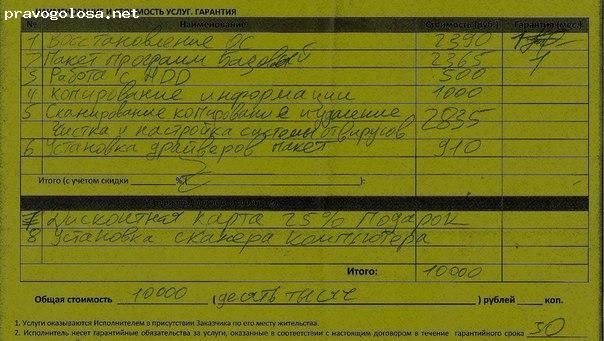 pravogolosa.net
И СТОИМОСТЬ УСЛУГ. ГАРАНТИЯ
№ Стоимость (руб.) Гарантия (мес.)
1 Восстановление ОС 2390
2 Пакет программ Базовый 2365 1
3 Работа с HDD 500
4 Копирование информации 1000
5 Сканирование копирование и удаление
чистка и настройка системы от вирусов 2835
6 Установка драйверов пакет 910
Итого (с учетом скидки %( ):
7 Дисконтная карта 25% Подарок
8 Установка сканера компьютера
Итого: 10000
Общая стоимость 10000 (десять тысяч ) рублей коп.
1. Услуги оказываются Исполнителем в присутствии Заказчика по его месту жительства.
2. Исполнитель несет гарантийные обязательства за услуги, оказанные в соответствии с настоящим договором в течение гарантийного срока 30